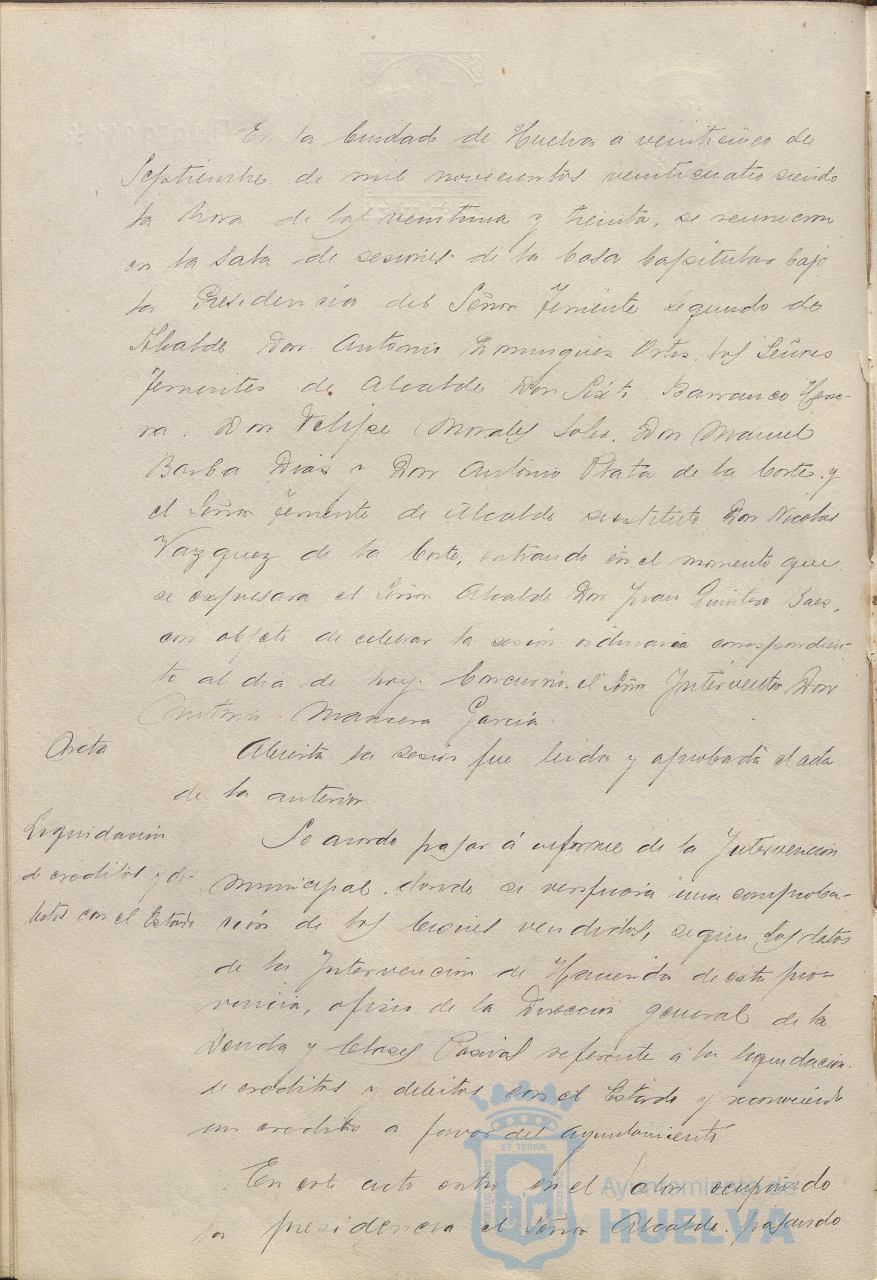 En la Ciudad de Huelva a veinticinco de
Septiembre de mil novecientos veinticuatro siendo
la hora de las veintiuna y treinta, se reunieron
en la Sala de sesiones de la Casa Capitular bajo
la Presidencia del Señor Teniente segundo de
Alcalde Don Antonio Dominguez Ortiz los Señores
Tenientes de Alcalde Don Sixto Barranco Herre-
ra. Don Felipe Morales Don Manuel
Barba Diaz y Don Antonio Plata de la Corte y
el Señor Teniente de Alcalde sustituto Don Nicolas
Vazquez de la Corte, entrando en el momento que
se expresara el Señor Alcalde Don Juan Quintero Baez,
con objeto de celebrar la sesion ordinaria correspondien-
te al dia de hoy. Concurrió el Señor Interventor Don
Antonio Mansera Garcia
Acta
Abierta la sesion fue leida y aprobada el acta
de la anterior
Liquidación
de creditos y de-
bitos con el Estado
Se acordo pasar á informe de la Intervencion
municipal, donde se verificara una comproba-
ción de los bienes vendidos, segun los datos
de la Intervención de Hacienda de esta pro-
vincia, oficio de la Dirección general de la
Deuda y Clases Pasivas referente á la liquidacion
de creditos y debitos con el Estado y reconociendo
un credito a favor del Ayuntamiento
En este acto entro en el salon ocupando
la presidencia el Señor Alcalde, pasando
ET TERRA
Ayuntamiento de
HUELVA